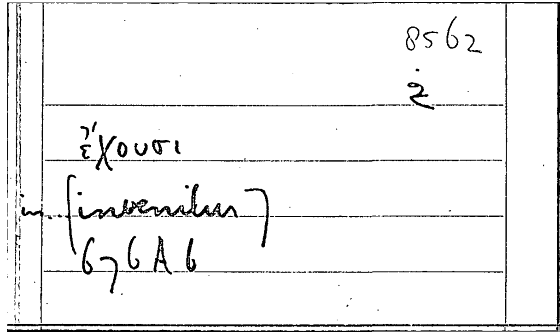 8562
ἔχουσι
in [invenitur]
676A6